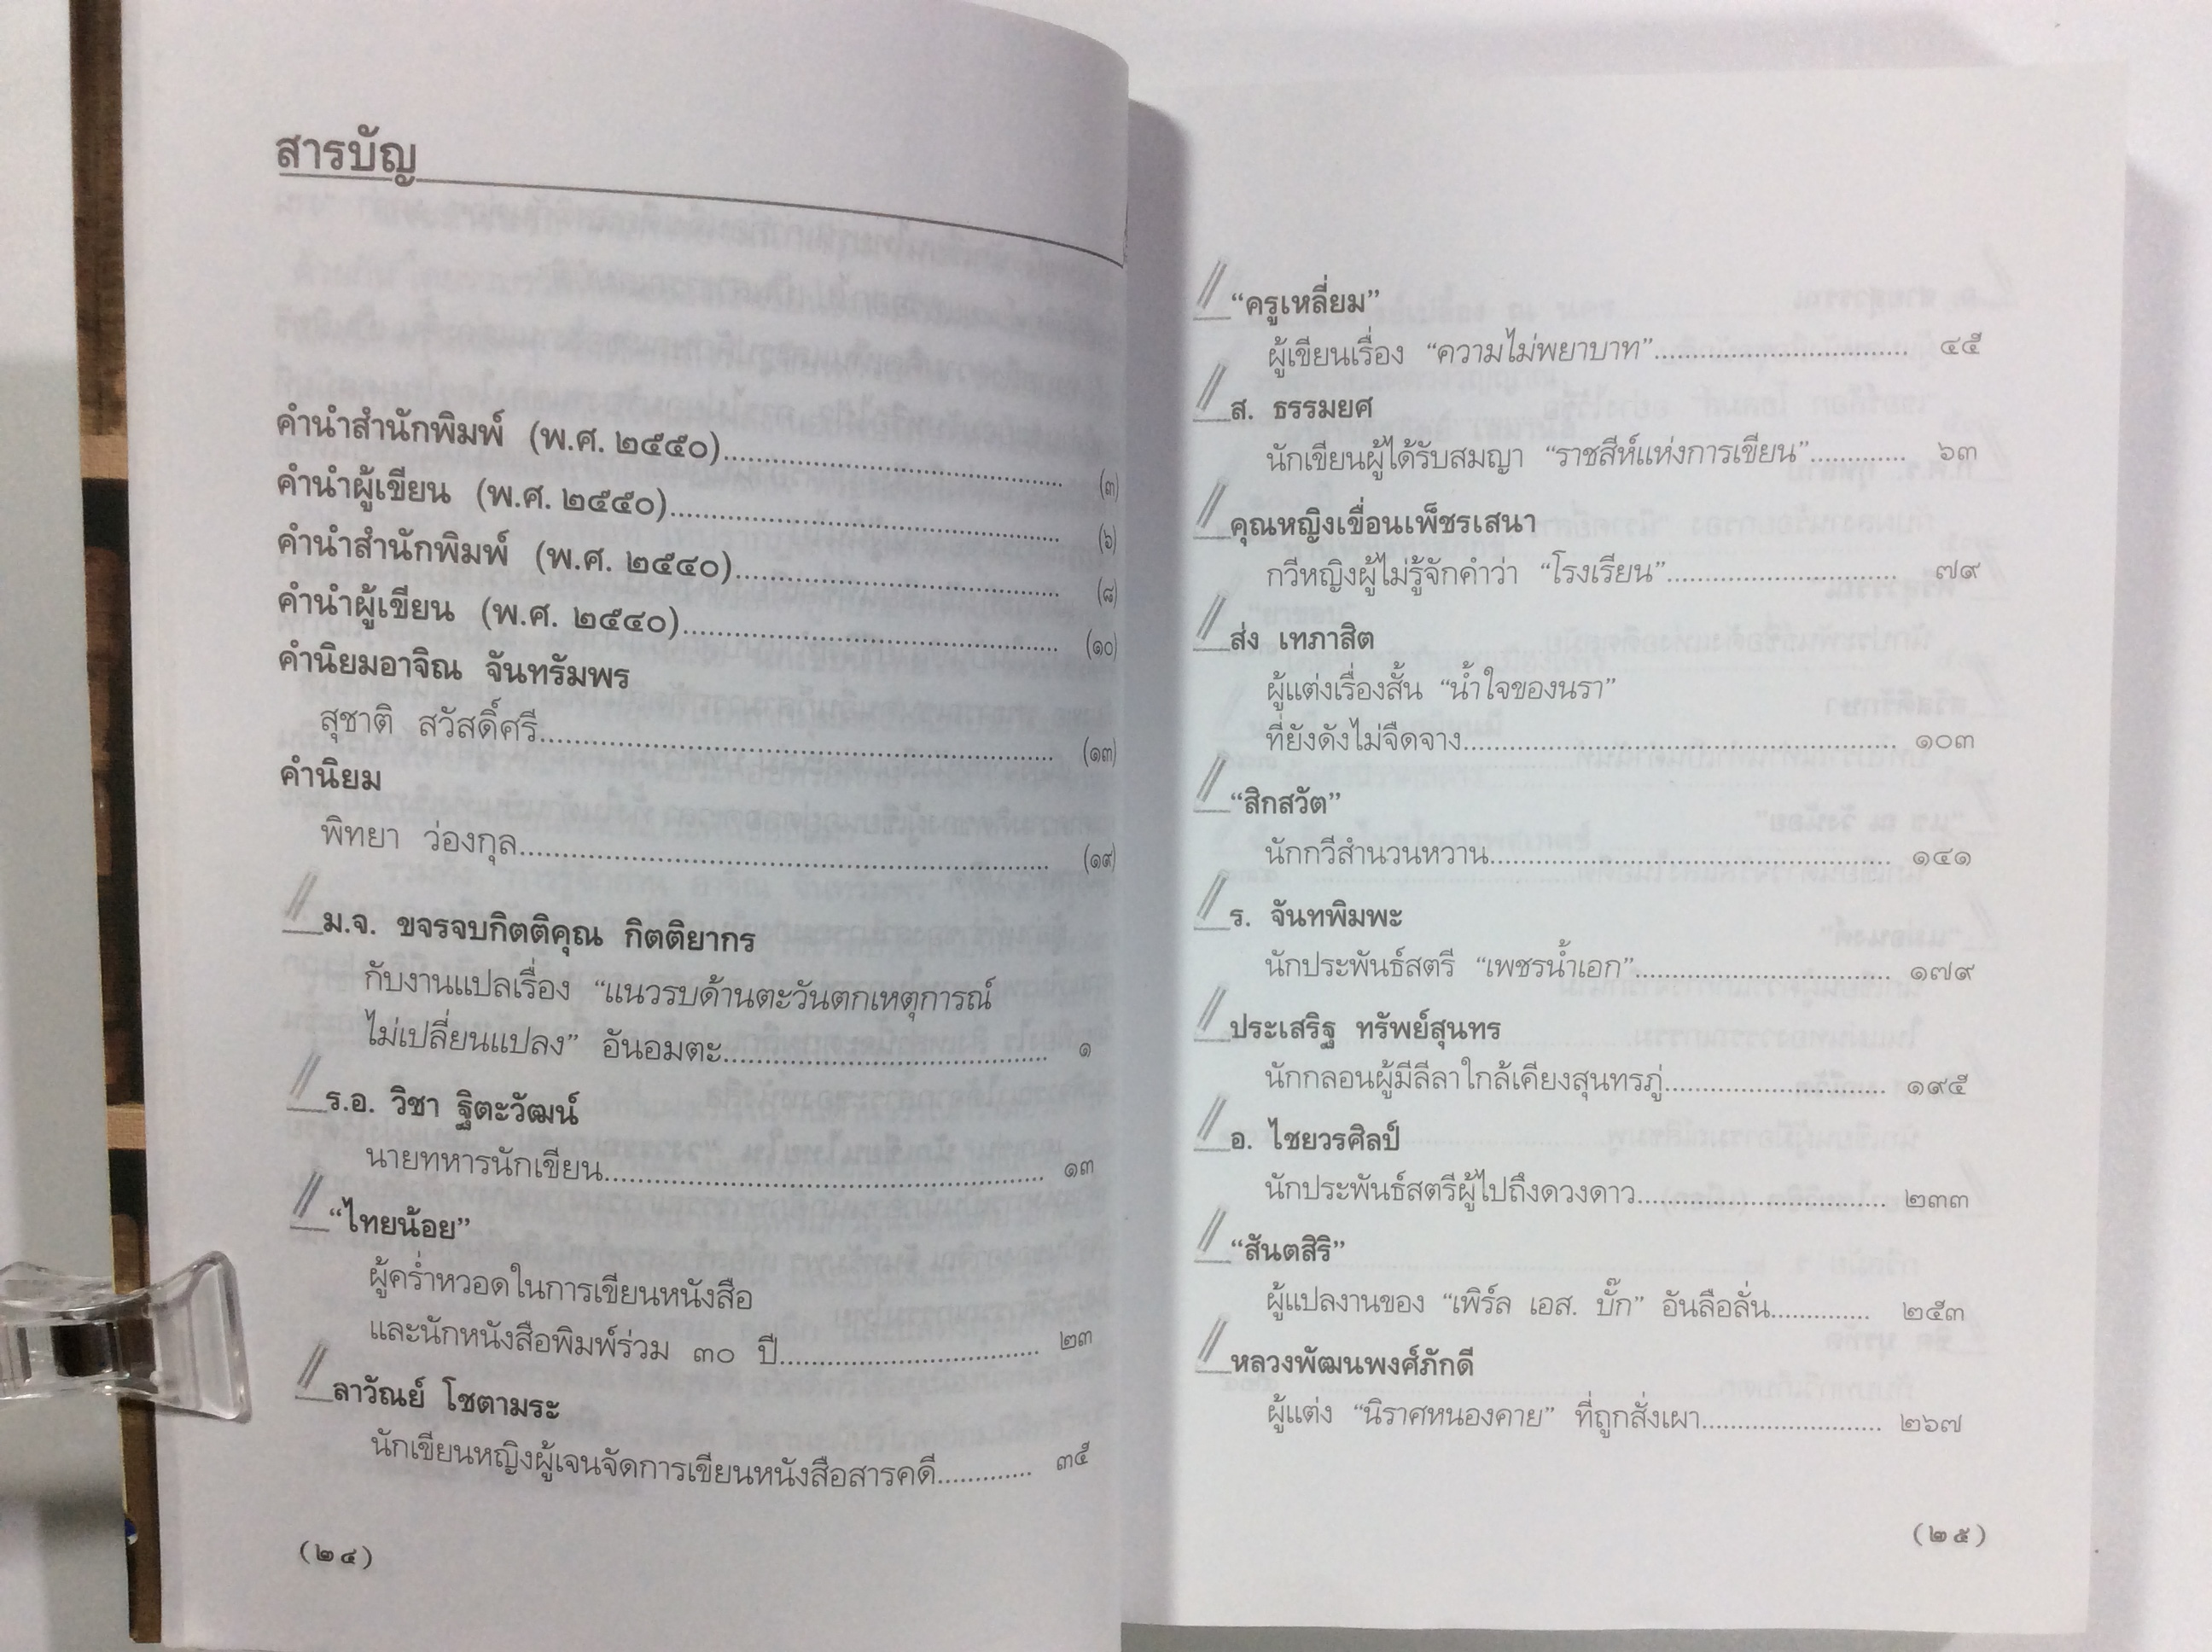 สารบัญ
คำนำสำนักพิมพ์ (พ.ศ. ๒๕๕๐)........................................ (๓)
คำนำผู้เขียน (พ.ศ. ๒๕๕๐)........................................ (๖)
คำนำสำนักพิมพ์ (พ.ศ. ๒๕๔๐)........................................ (๘)
คำนำผู้เขียน (พ.ศ. ๒๕๔๐)........................................ (๑๐)
คำนิยมอาจิณ จันทรัมพร
สุชาติ สวัสดิ์ศรี........................................ (๑๓)
คำนิยม
พิทยา ว่องกุล........................................ (๑๙)
ม.จ. ขจรจบกิตติคุณ กิตติยากร
กับงานแปลเรื่อง “แนวรบด้านตะวันตกเหตุการณ์
ไม่เปลี่ยนแปลง” อันอมตะ........................................ ๑
ร.อ. วิชา ฐิตะวัฒน์
นายทหารนักเขียน........................................ ๑๓
“ไทยน้อย”
ผู้คร่ำหวอดในการเขียนหนังสือ
และนักหนังสือพิมพ์ร่วม ๓๐ ปี........................................ ๒๓
ลาวัณย์ โชตามระ
นักเขียนหญิงผู้เจนจัดการเขียนหนังสือสารคดี............. ๓๕
(๒๔)
“ครูเหลี่ยม”
ผู้เขียนเรื่อง “ความไม่พยาบาท”................................ ๔๕
ส. ธรรมยศ
นักเขียนผู้ได้รับสมญา “ราชสีห์แห่งการเขียน”............ ๖๓
คุณหญิงเขื่อนเพ็ชรเสนา
กวีหญิงผู้ไม่รู้จักคำว่า “โรงเรียน”............................. ๗๙
ส่ง เทภาสิต
ผู้แต่งเรื่องสั้น “น้ำใจของนรา”
ที่ยังดังไม่จืดจาง........................................ ๑๐๓
“สิกสวัต”
นักกวีสำนวนหวาน........................................ ๑๔๑
ร. จันทพิมพะ
นักประพันธ์สตรี “เพชรน้ำเอก”................................ ๑๗๙
ประเสริฐ ทรัพย์สุนทร
นักกลอนผู้มีลีลาใกล้เคียงสุนทรภู่............................ ๑๙๕
อ. ไชยวรศิลป์
นักประพันธ์สตรีผู้ไปถึงดวงดาว............................... ๒๓๓
“สันตสิริ”
ผู้แปลงานของ “เพิร์ล เอส. บั๊ก” อันลือลั่น............. ๒๕๓
หลวงพัฒนพงศ์ภักดี
ผู้แต่ง “นิราศหนองคาย” ที่ถูกสั่งเผา....................... ๒๖๗
(๒๕)